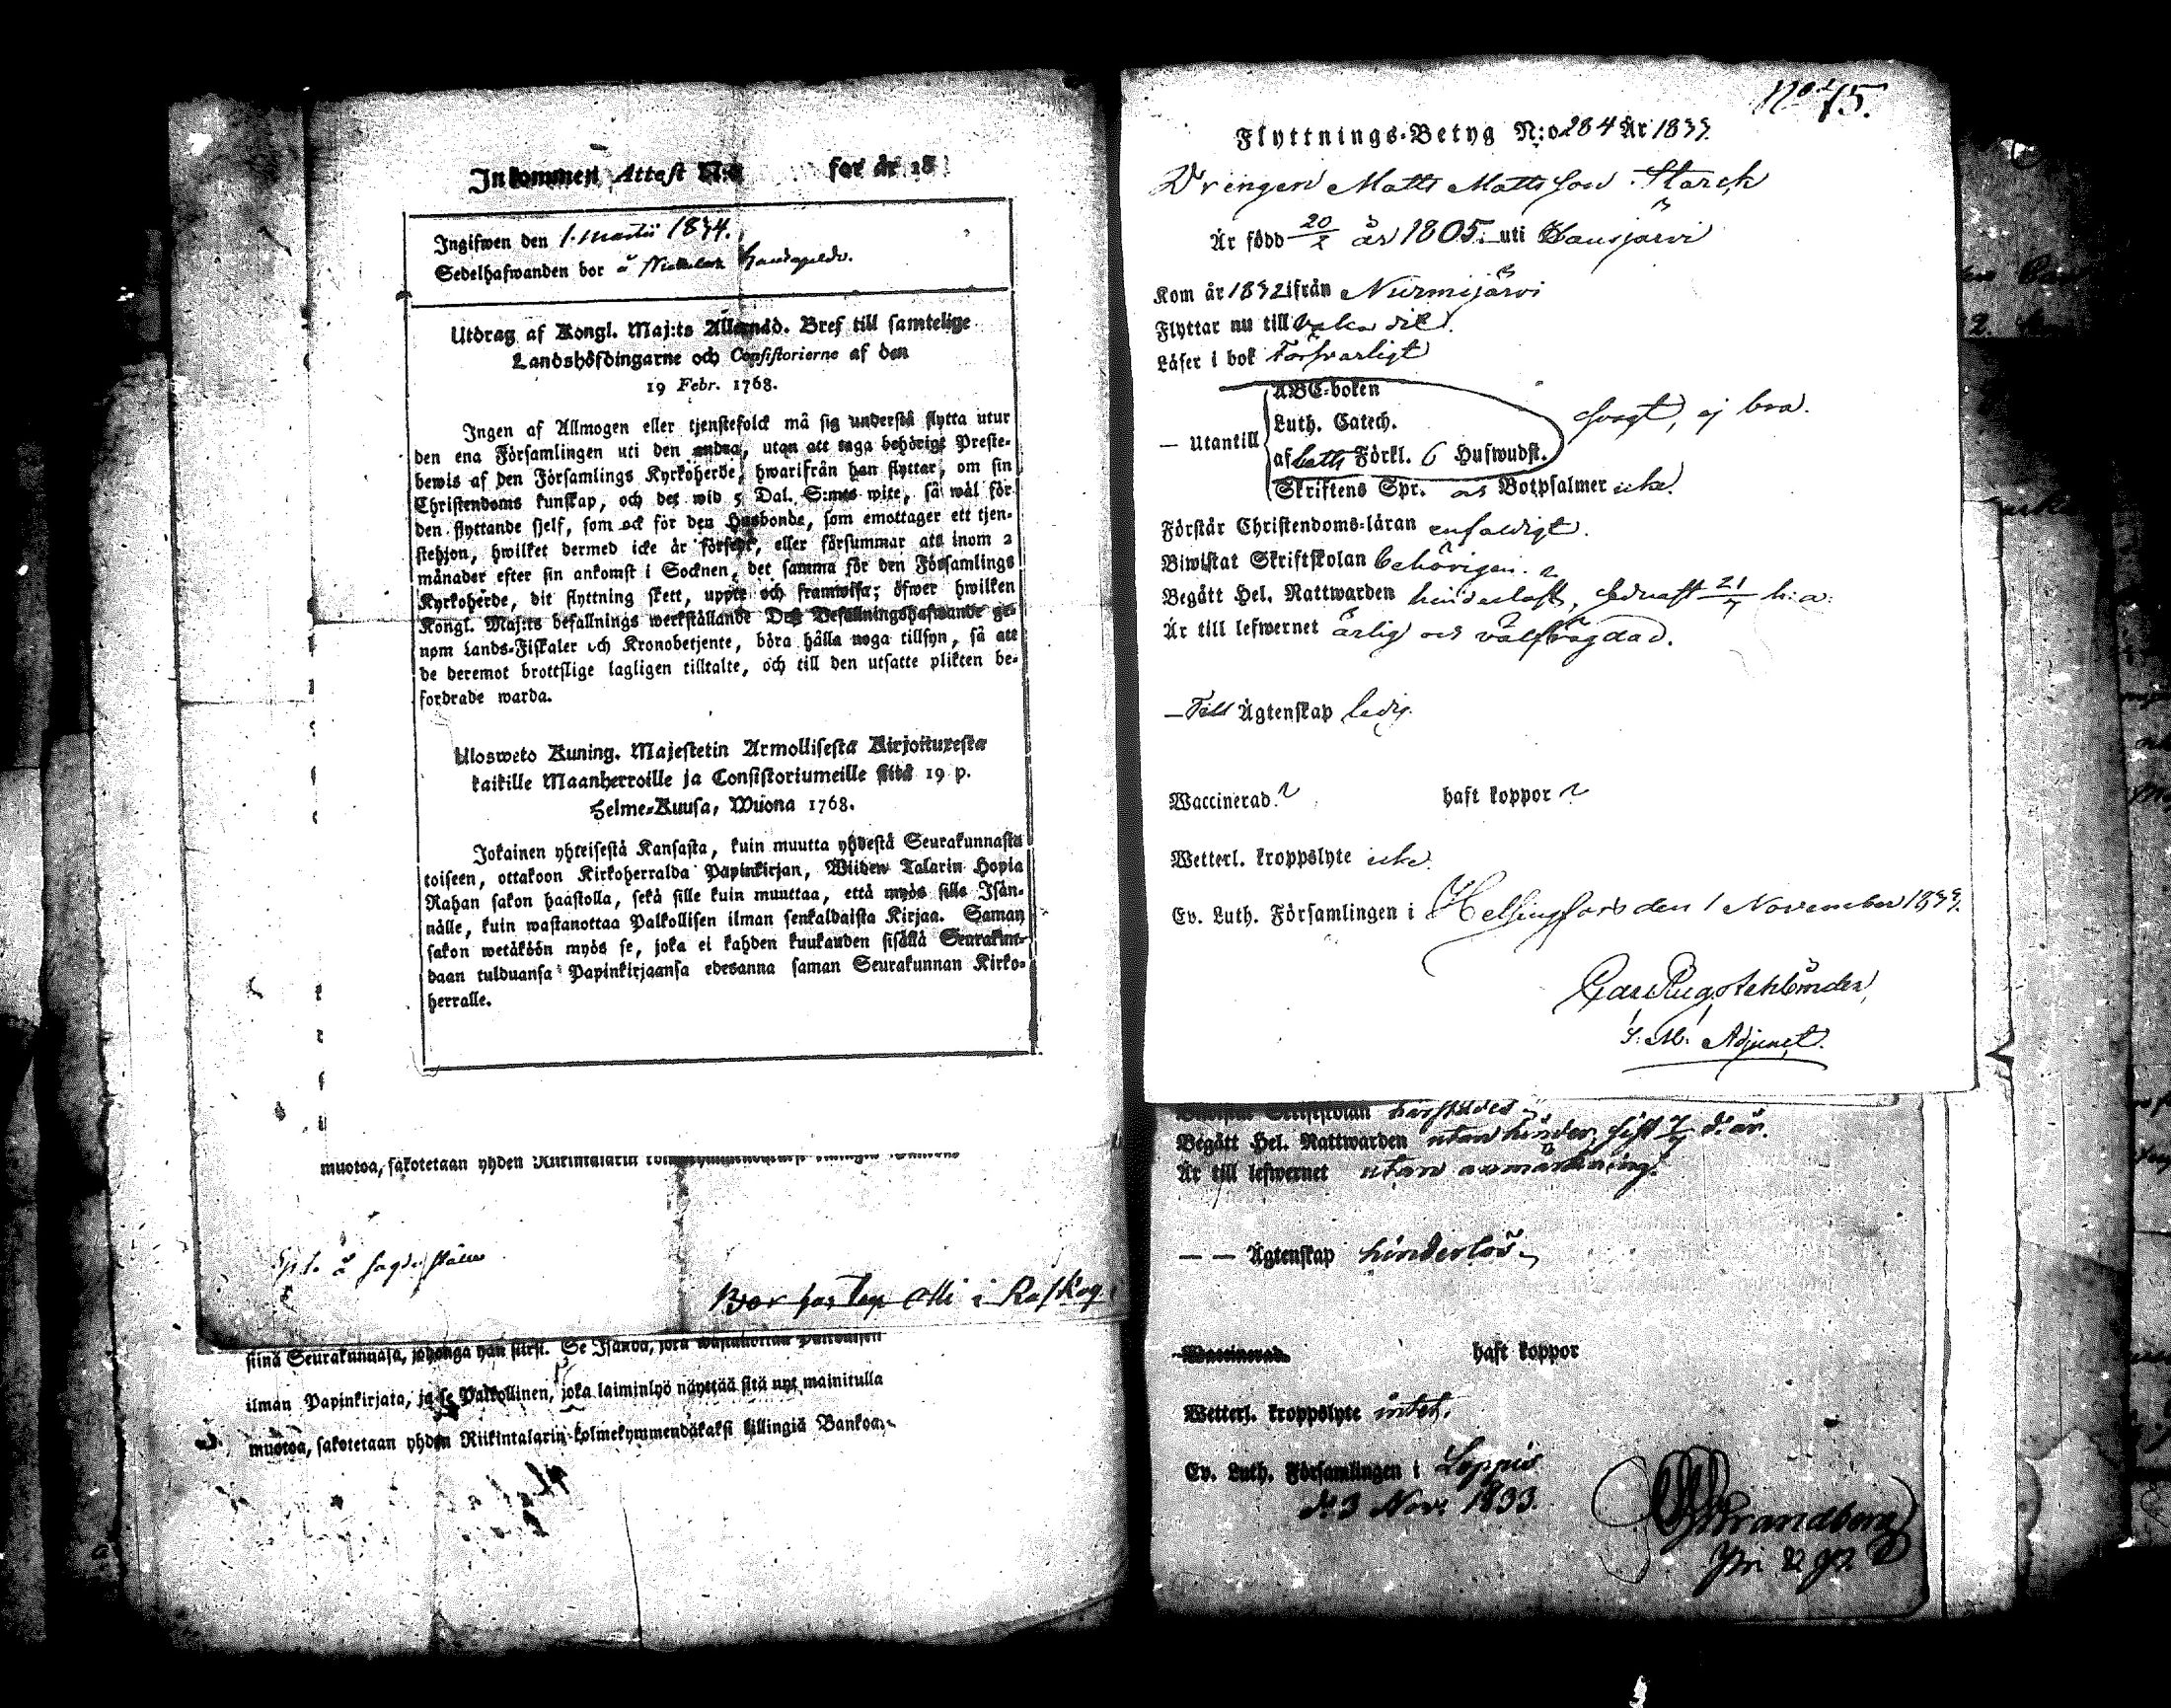 Inkommen Attest N:o för år 18
Ingifwen den 1. Martii 1834.
Sedelhafwanden bor å
Utdrag af Kongl. Maj:ts Allernåd. Bref till samtelige
Landshöfdingarne och Consistorierne af den
19 Febr. 1768.
Ingen af Allmogen eller tjenstefolck må sig understå flytta utur
den ena Församlingen uti den andra, utan att taga behörigt Preste-
bewis af den Församlings Kyrkoherde, hwarifrån han flyttar, om sin
Christendoms kunskap, och det wid 5 Dal. S:mts wite, så wäl för
den flyttande sjelf, som ock för den Husbonde, som emottager ett tjen-
stehjon, hwilket dermed icke är försedt, eller försummar att inom 2
månader efter sin ankomst i Socknen, det samma för den Församlings
Kyrkoherde, dit flyttning skett, uppte och framwisa; öfwer hwilken
Kongl. Maj:ts befallnings werkställande Dess Befallningshafwande ge-
nom Lands-Fiskaler och Kronobetjente, böra hålla noga tillsyn, så att
de deremot brottslige lagligen tilltalte, och till den utsatte plikten be-
fordrade warda.
Ulosweto Kuning. Majestetin Armollisesta Kirjoituxesta
kaikille Maanherroille ja Consistoriumeille siitä 19 p.
Helme-Kuusa, Wuona 1768.
Jokainen yhteisestä Kansasta, kuin muutta yhdestä Seurakunnasta
toiseen, ottakoon Kirkoherralda Papinkirjan, Wiiden Talarin Hopia
Rahan sakon haastolla, sekä sille kuin muuttaa, että myös sille Isän-
nälle, kuin wastanottaa Palkollisen ilman senkaldaista Kirjaa. Saman
sakon wetäköön myös se, joka ei kahden kuukauden sisällä Seurakun-
daan tulduansa Papinkirjaansa edesanna saman Seurakunnan Kirko-
herralle.
muotoa, sakotetaan yhden Riikintalarin
Bor hos Tap Olli i Raskog
siinä Seurakunnasa, johonga hän siirsi. Se Isändä, jota wastanottaa Palkollisen
ilman Papinkirjata, ja se Palkollinen, joka laiminlyö näyttää sitä nyt mainitulla
muotoa, sakotetaan yhden Riikintalarin kolmekymmendäkaksi killingiä Bankoa.
No 75.
Flyttnings-Betyg N:o 284 År 1833.
Drengen Matts Mattsson Starck
Är född 20/X år 1805. uti Hausjärvi
Kom år 1832 ifrån Nurmijärvi
Flyttar nu till
Läser i bok Försvarligt
— Utantill
ABC-boken
Luth. Catech.
af Förkl. 6 Hufwudst.
svagt, ej bra.
Skriftens Spr. os Botpsalmer icke.
Förstår Christendoms-läran enfaldigt.
Biwistat Skriftskolan behörigen.
Begått Hel. Nattwarden hinderlöst, senast 21/7 h: a:
Är till lefwernet ärlig och välfrägdad.
— Till Ägtenskap ledig.
Waccinerad ? haft koppor ?
Wetterl. kroppslyte icke.
Ev. Luth. Församlingen i Helsingfors den 1 November 1833.
S: M: Adjunct.
Biwistat Skriftskolan
Begått Hel. Nattwarden utan hinder, sist 7/7 d: år.
Är till lefwernet utan anmärkning.
— — Ägtenskap hinderlös
Waccinerad. haft koppor
Wetterl. kroppslyte intet.
Ev. Luth. Församlingen i Loppis
d. 3 Nov. 1833.
Strandberg